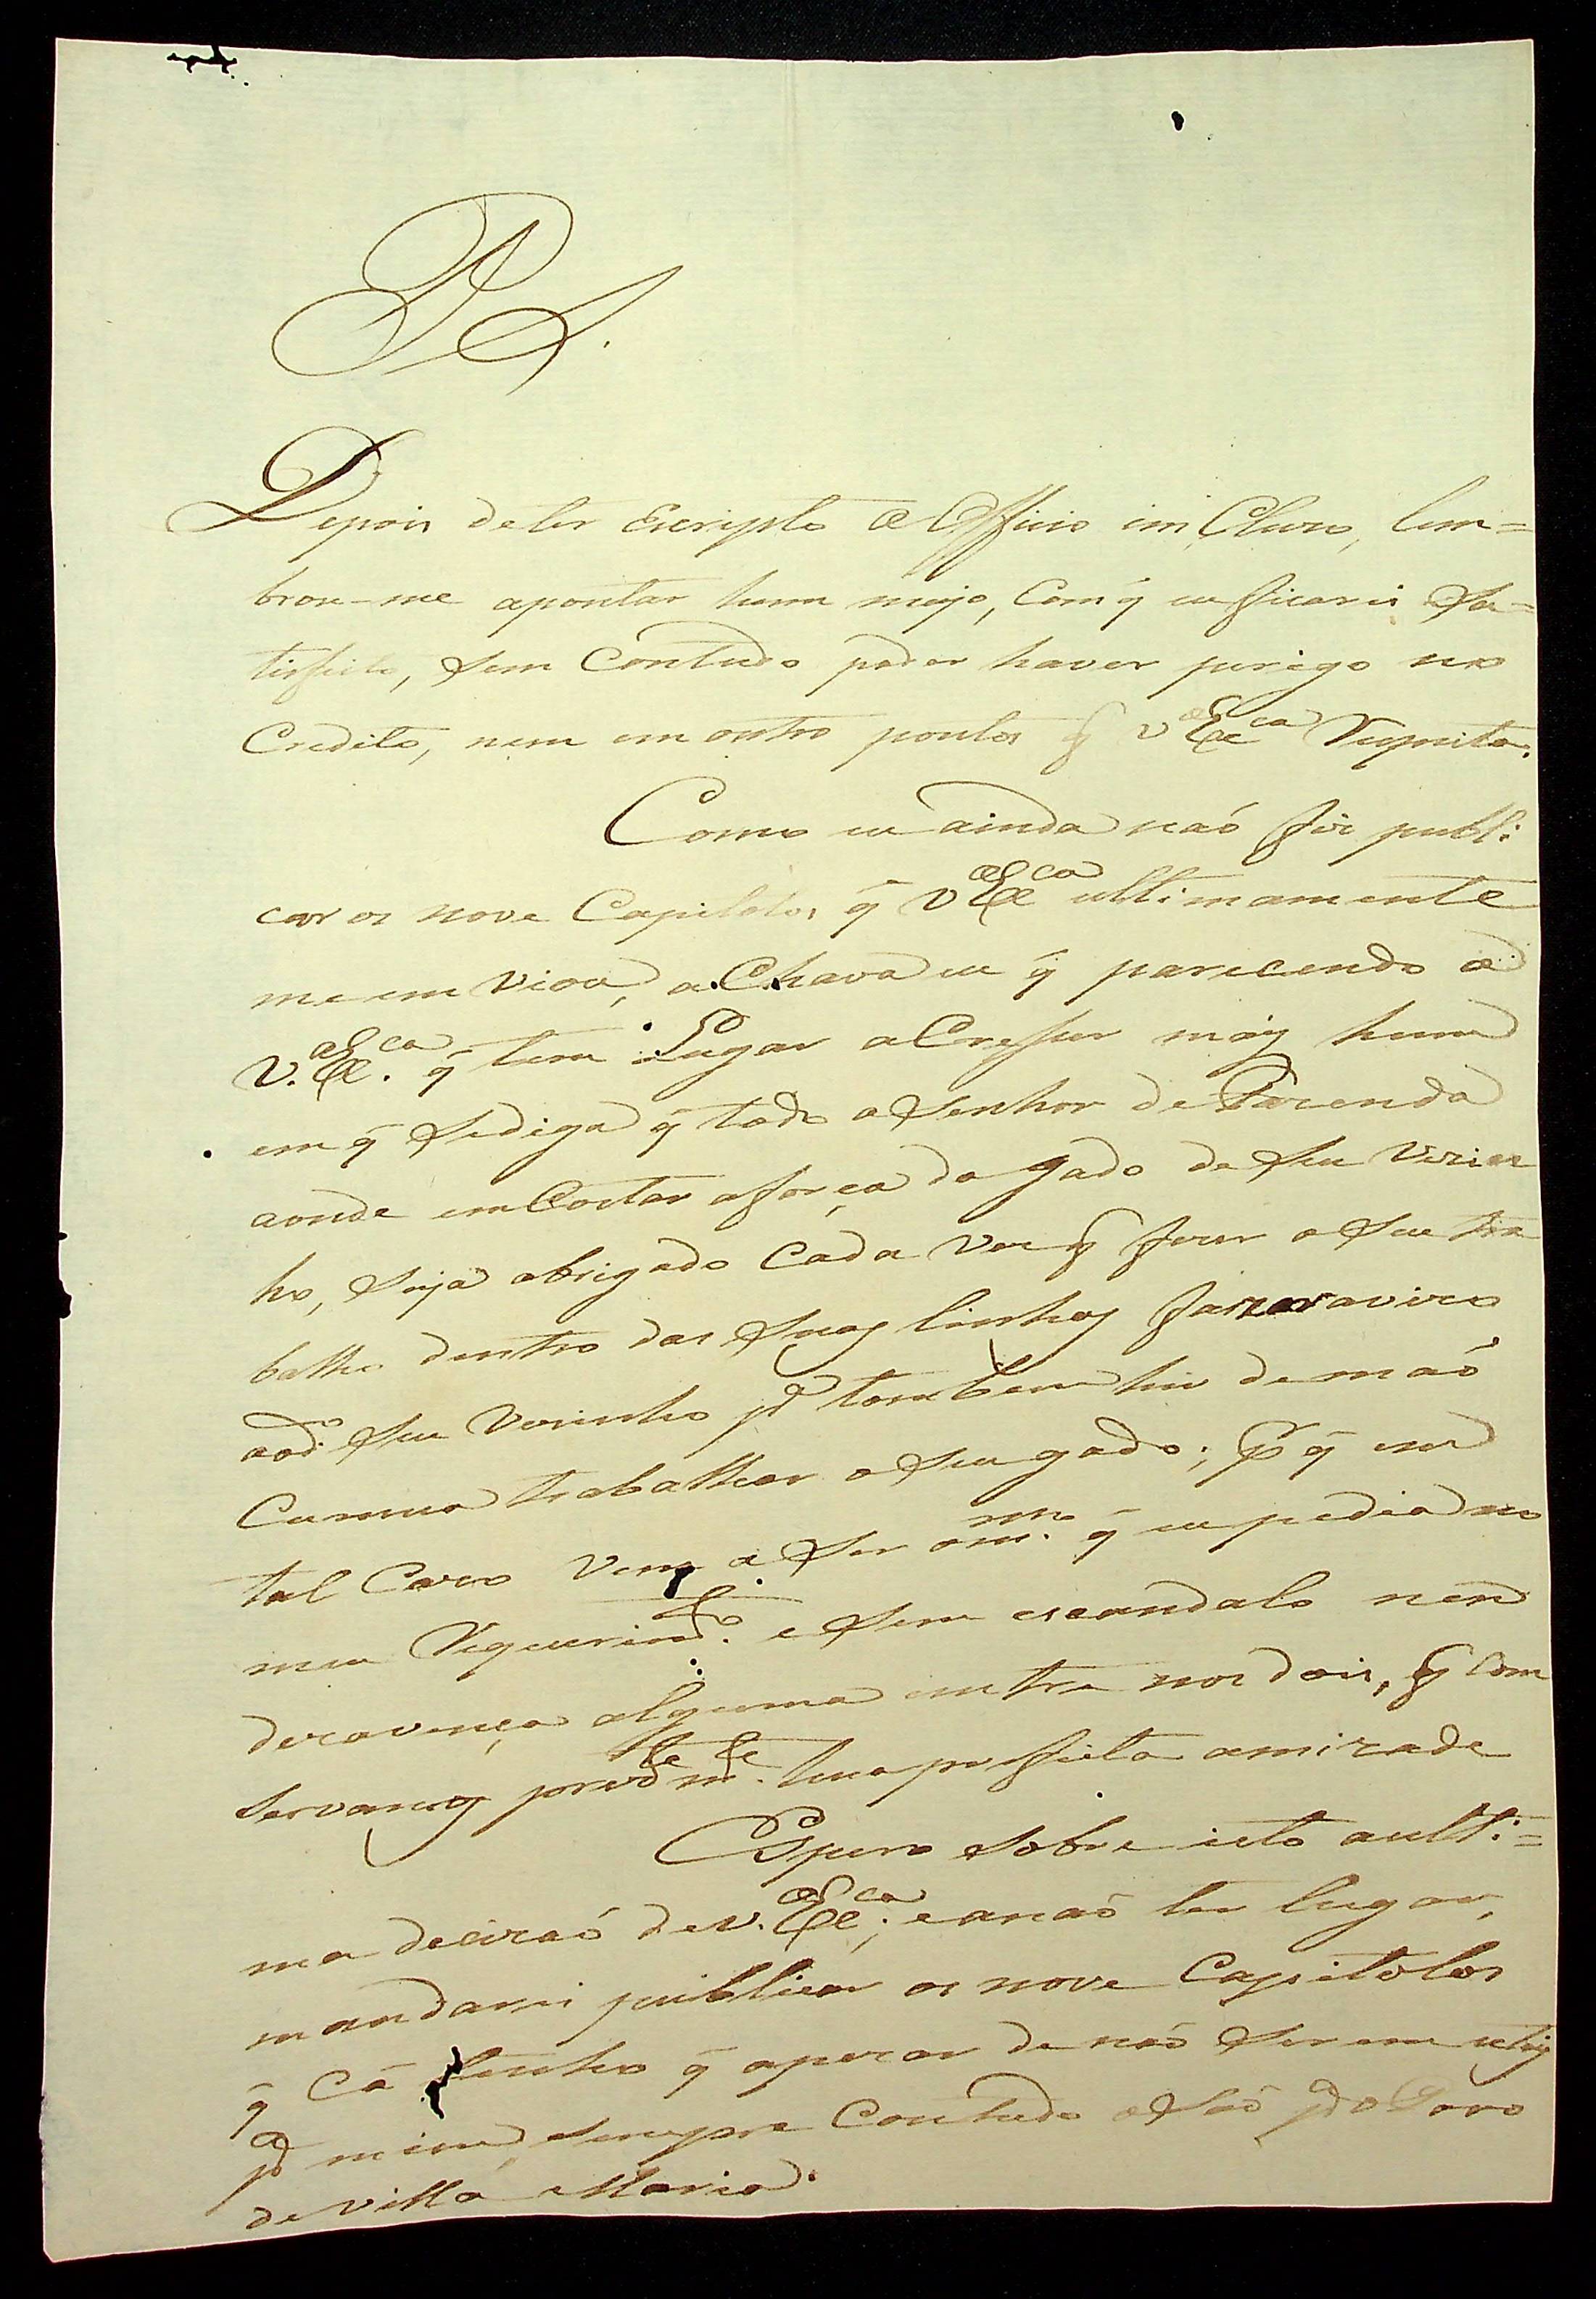 P. S.
Depois de ter Escripto o Officio imCluzo, lem=
brou-me apontar hum meyo, Com q̃ eu ficarei Sa=
tisfeito, Sem Contudo poder haver perigo no
Credito, nem em outro pontos q̃ V Exca Respeita.
Como eu ainda naõ fiz publi:
car os nove Capitolos q̃ V Exca ultimamente
me em viou, aChava eu q̃ parecendo a
V. Exca. q̃ tem Lugar aCresser máis hum
em q̃ Se diga q̃ todo o Senhor de Fazenda
aonde emCostar a força do gado de Seu Vizin
ho, Seja obrigado Cada vez q̃ fizer o Seu tra
balho dentro das Suas linhas fazer avizo
ao do. Seu Vezinho pa. tambem hir de maõ
Cumua trabalhar o Seu gado; P q̃ em
tal Cazo Vem a Ser o mmo. q̃ eu pedia no
meu Requerimto. e Sem escandalo nem
dezavença alguma entre nos dois, q̃ Com
Servamos prezte mte. hua perfeita amizade
Espero Sobre isto a ulti:=
ma decizaõ de V. Exca; e a naõ ter lugar,
mandarei publicar os nove Capitolos
q̃ Cá tenho q̃ apezar de naõ Serem uteis
pa mim, Sempre Contudo o Saõ pa o Povo
de Villa Maria.